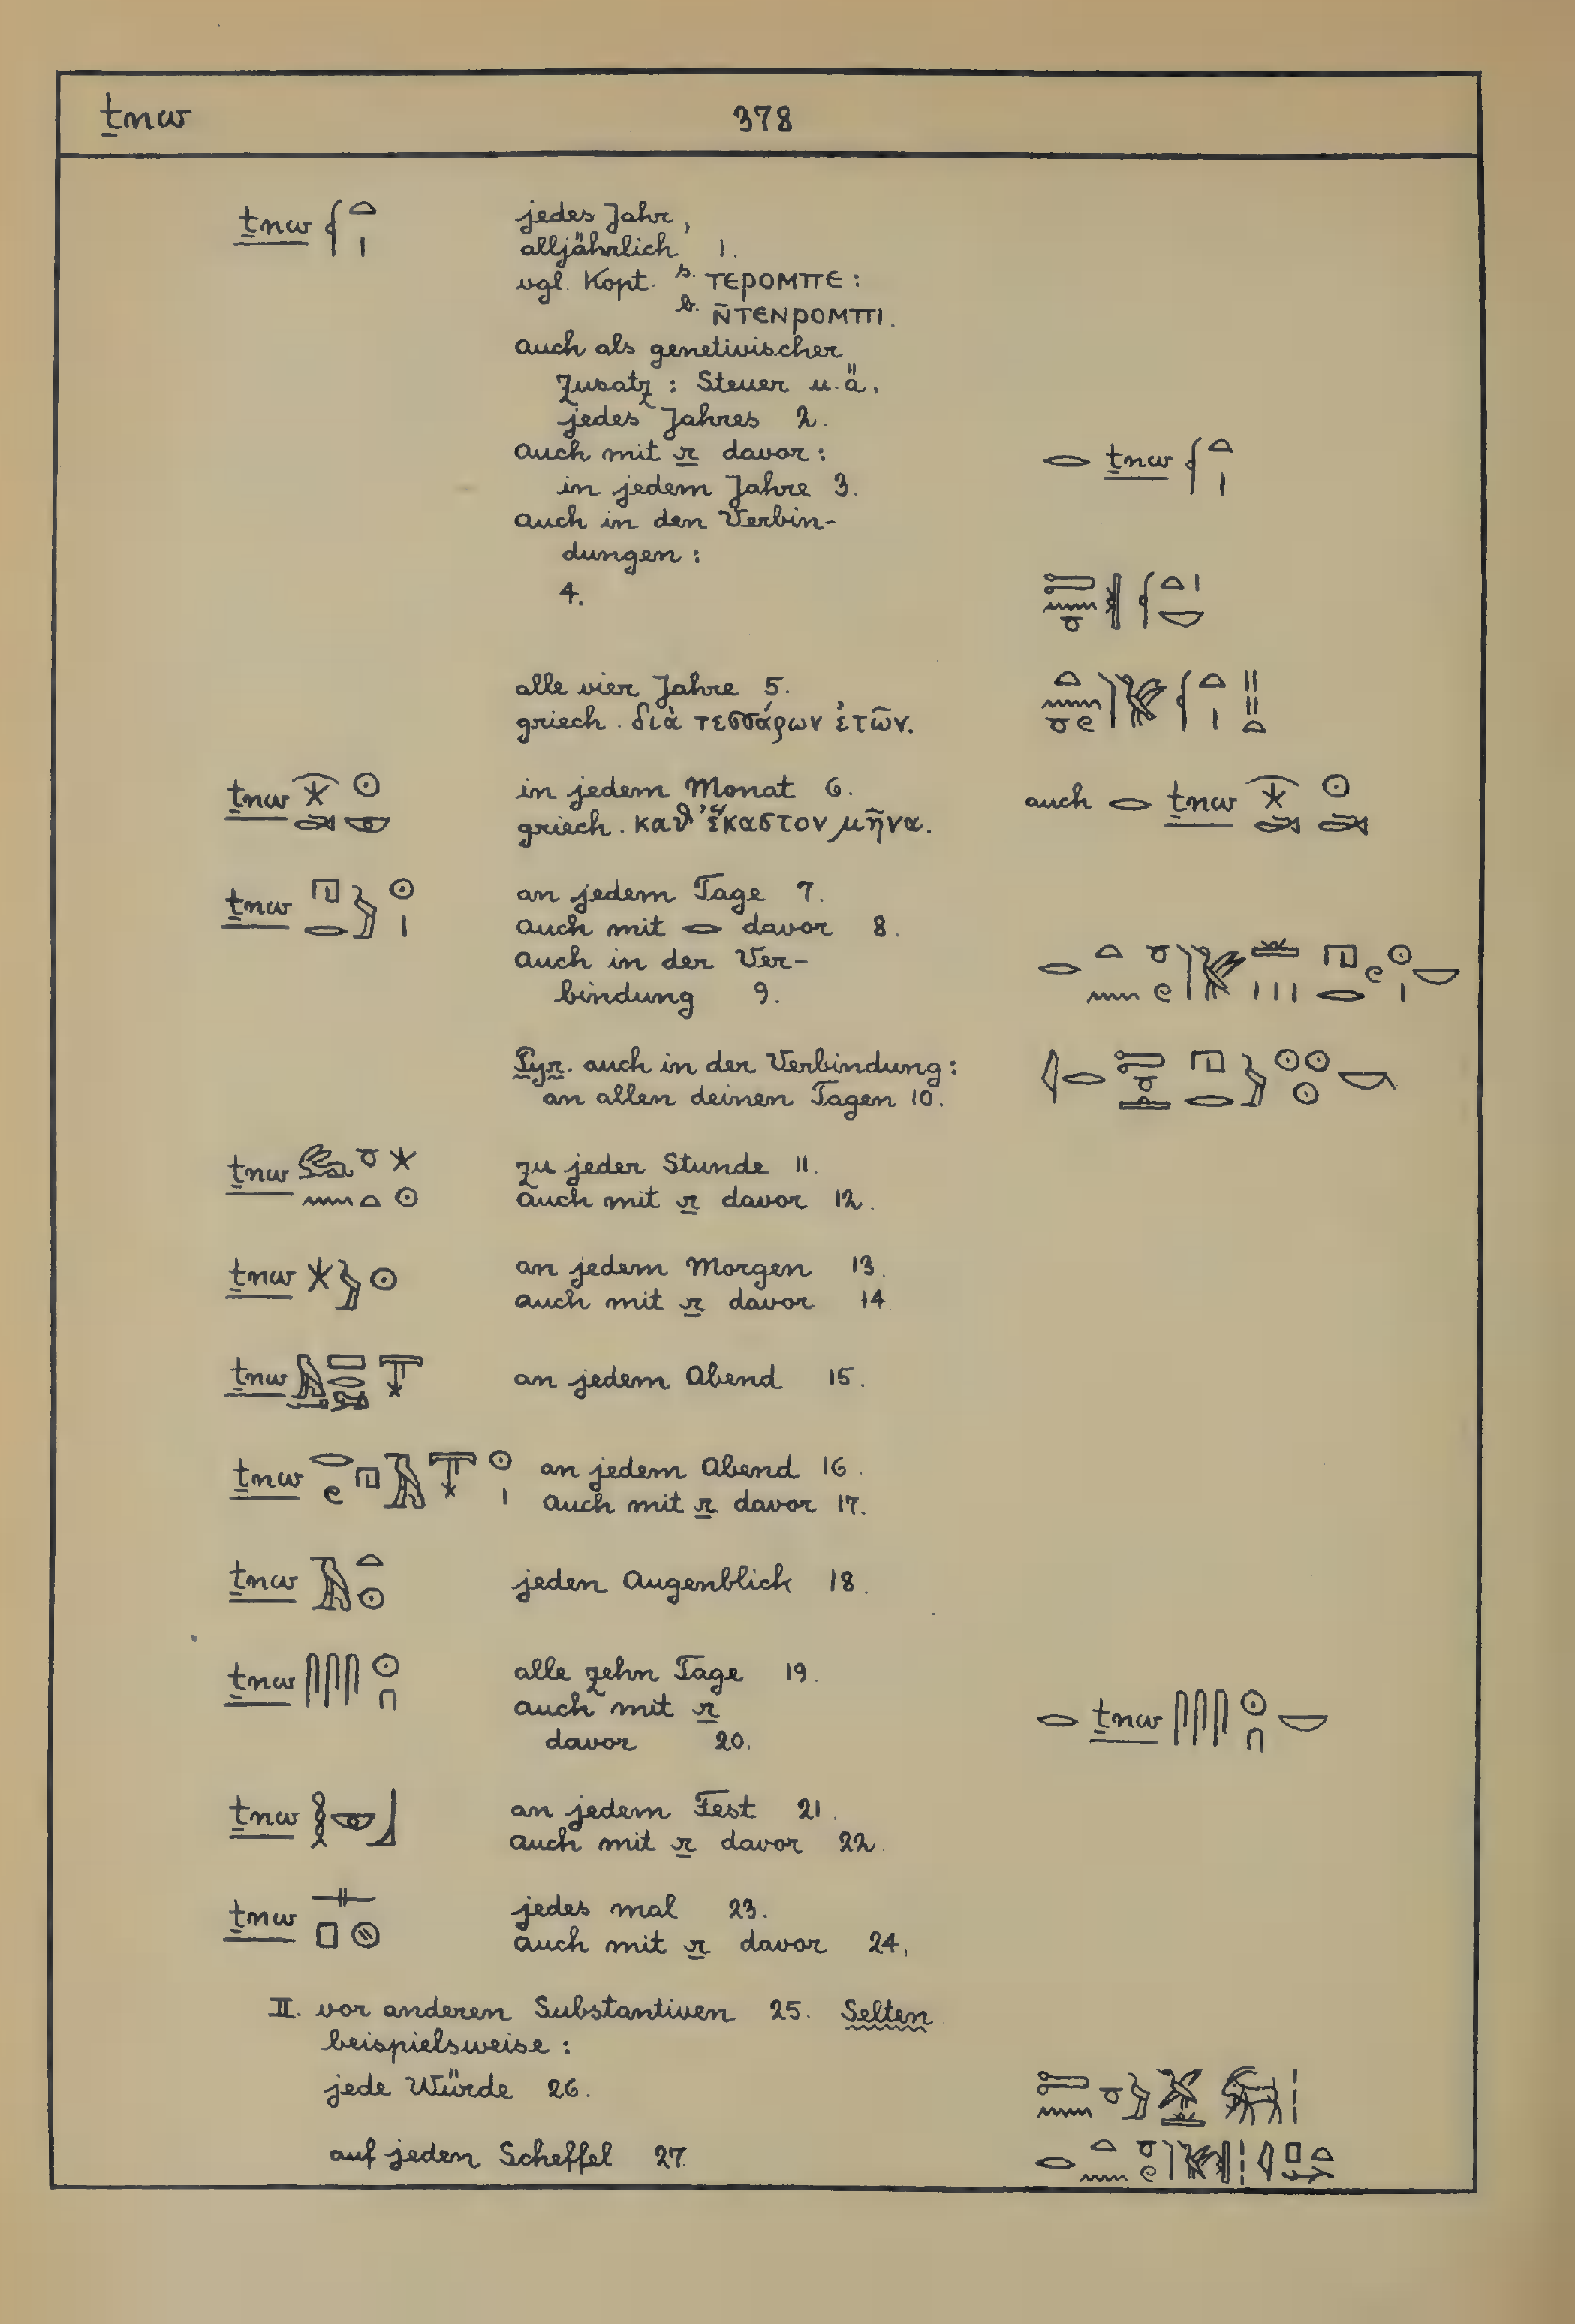 ṯnw 378
ṯnw 𓆳𓏏𓏤 jedes Jahr,
alljährlich 1.
vgl. Kopt. s. ⲧⲉⲣⲟⲙⲡⲉ :
b. ⲛ̄ⲧⲉⲛⲣⲟⲙⲡⲓ.
auch als genetivischer
Zusatz : Steuer u. ä.
jedes Jahres 2.
auch mit r davor : 𓂋 ṯnw 𓆳𓏏𓏤
in jedem Jahre 3.
auch in den Verbin-
dungen :
4.
alle vier Jahre 5.
griech. διὰ τεσσάρων ἐτῶν.
ṯnw in jedem Monat 6. auch 𓂋 ṯnw
griech. καθ' ἕκαστον μῆνα.
ṯnw an jedem Tage 7.
auch mit 𓂋 davor 8.
auch in der Ver-
bindung 9.
Pyr. auch in der Verbindung :
an allen deinen Tagen 10.
ṯnw 𓃹𓈖𓏌𓏏𓇼𓇳 zu jeder Stunde 11.
auch mit r davor 12.
ṯnw 𓇼𓃀𓇳 an jedem Morgen 13.
auch mit r davor 14.
ṯnw an jedem Abend 15.
ṯnw an jedem Abend 16.
auch mit r davor 17.
ṯnw 𓅓𓏏𓇳 jeden Augenblick 18.
ṯnw alle zehn Tage 19.
auch mit r 𓂋 ṯnw
davor 20.
ṯnw 𓎛𓁹𓃀 an jedem Fest 21.
auch mit r davor 22.
ṯnw 𓊃𓊪𓐍 jedes mal 23.
auch mit r davor 24.
II. vor anderen Substantiven 25. Selten.
beispielsweise :
jede Würde 26.
auf jeden Scheffel 27.